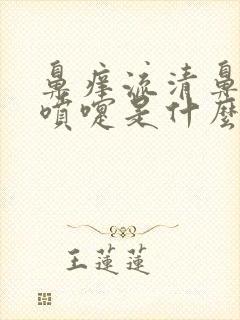 鼻痒流清鼻
喷嚏是什麼
王蓮蓮